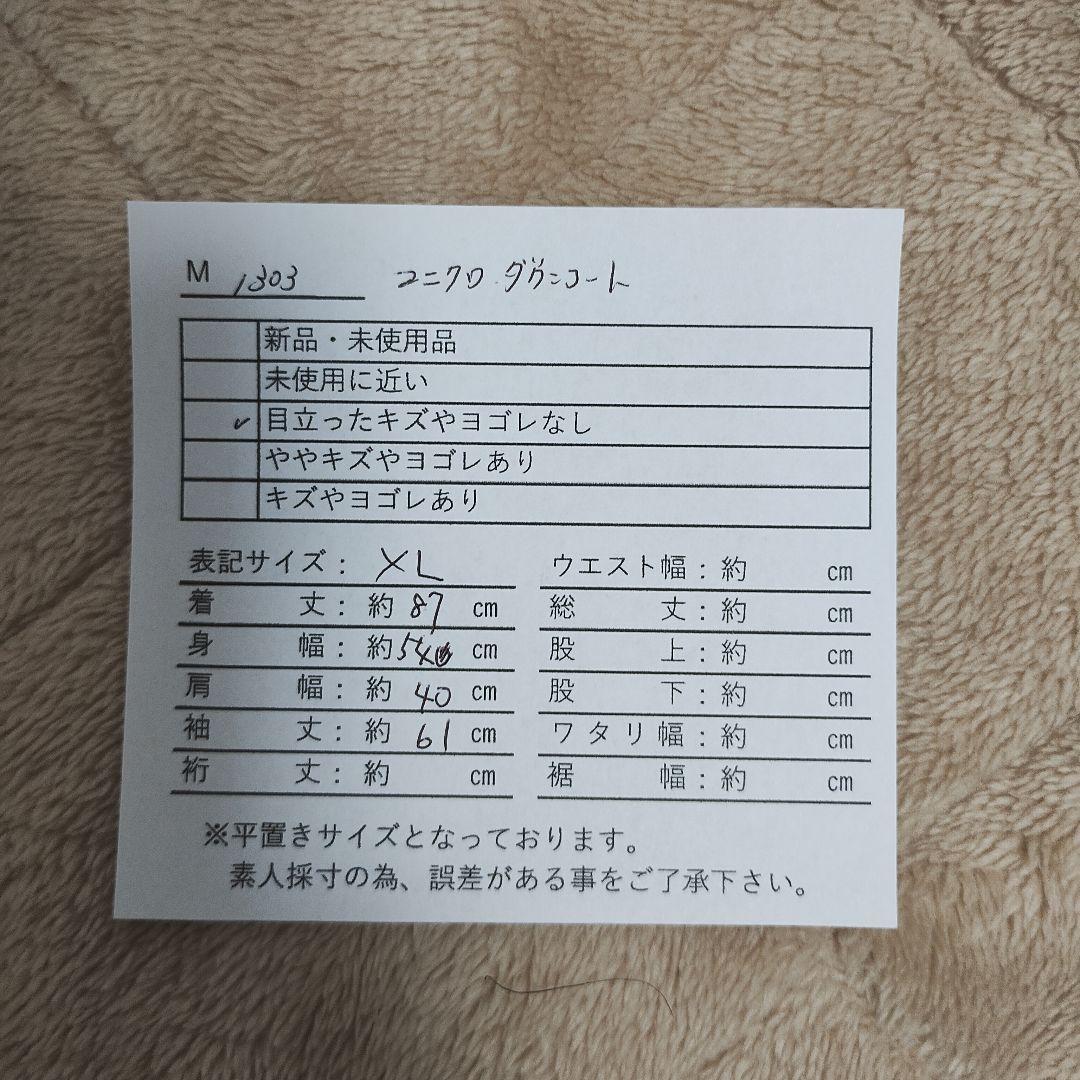 M 1303 ユニクロ ダウンコート
新品・未使用品
未使用に近い
✓ 目立ったキズやヨゴレなし
ややキズやヨゴレあり
キズやヨゴレあり
表記サイズ： XL
着丈：約 87 cm
身幅：約 54 cm
肩幅：約 40 cm
袖丈：約 61 cm
裄丈：約 cm
ウエスト幅：約 cm
総丈：約 cm
股上：約 cm
股下：約 cm
ワタリ幅：約 cm
裾幅：約 cm
※平置きサイズとなっております。
素人採寸の為、誤差がある事をご了承下さい。